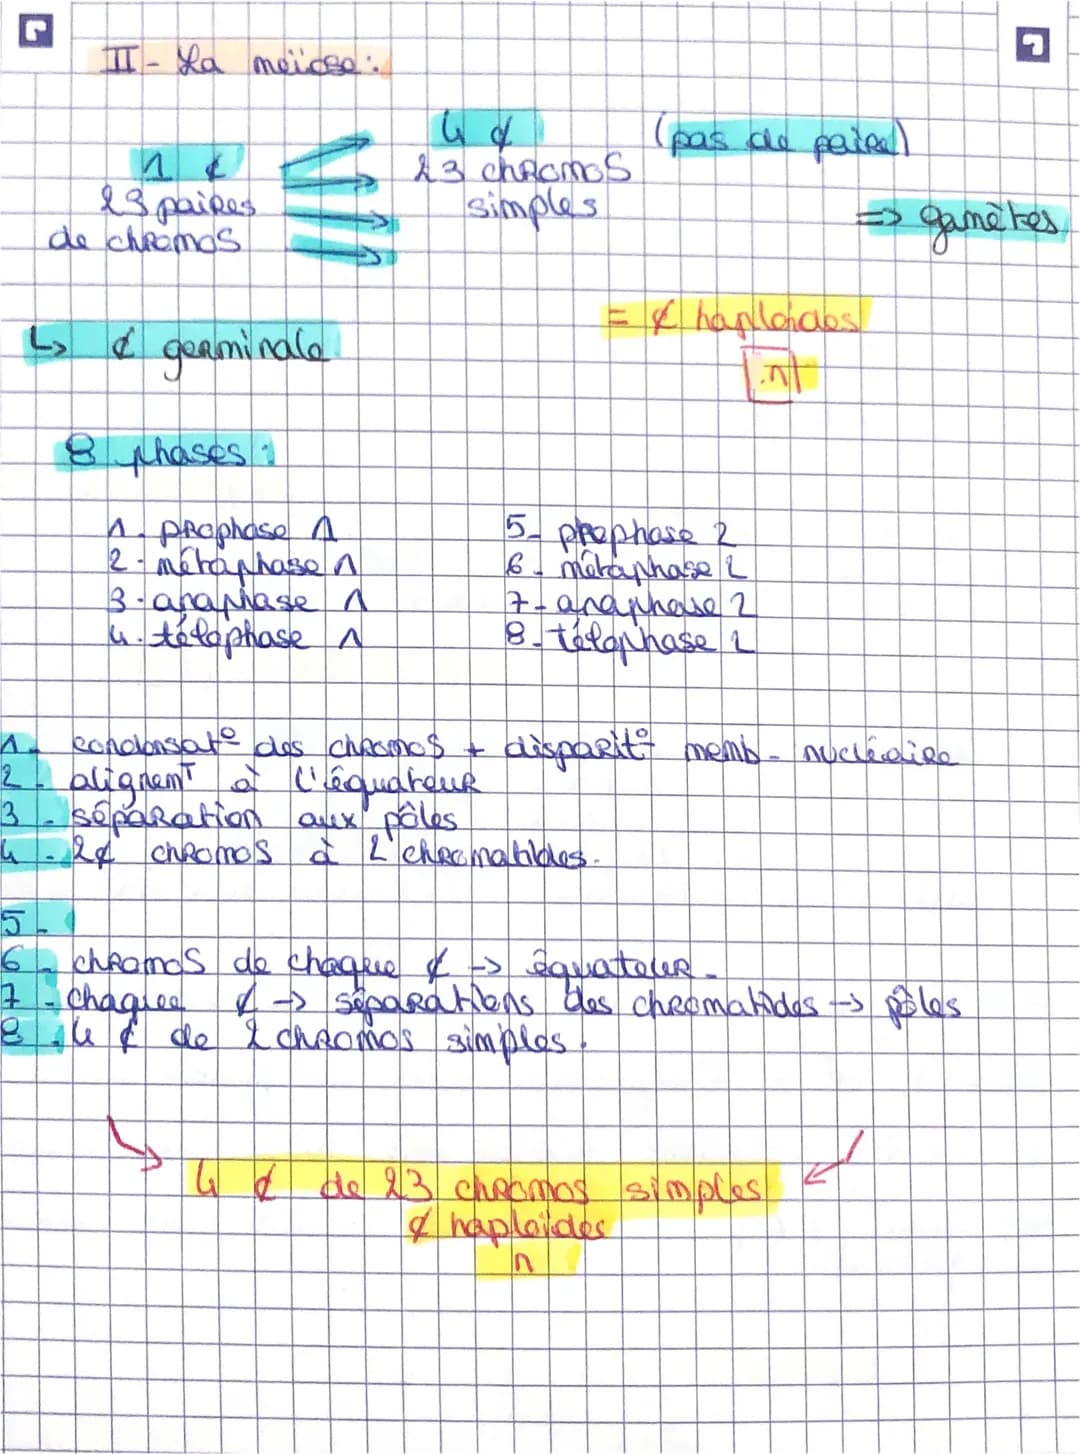 II - La méiose :
1 ¢
23 paires
de chromos
4 ¢
23 chromos
simples
(pas de paire)
=> gamètes
↳ ¢ germinale
= ¢ haploïdes
n
8 phases :
1. prophase 1
2. métaphase 1
3. anaphase 1
4. télophase 1
5- prophase 2
6- métaphase 2
7- anaphase 2
8- télophase 2
1- condensat° des chromos + disparit° memb- nucléaire
2- alignemT à l'équateur
3- séparation aux pôles
4- 2¢ chromos à 2 chromatides.
5-
6- chromos de chaque ¢ -> équateur.
7- chaque ¢ -> séparations des chromatides -> pôles
8. 4 ¢ de 2 chromos simples.
4 ¢ de 23 chromos simples
¢ haploïdes
n